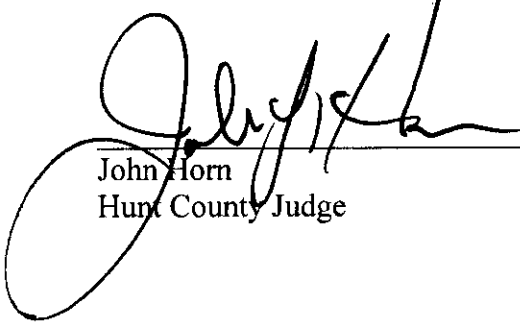 John Horn
Hunt County Judge